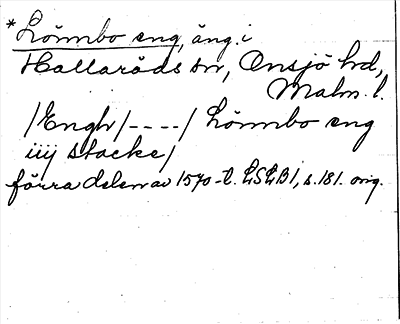 *Lönnbo eng, äng. i
Hallaröds sn, Onsjö hd,
Malm. l.
/Engh/----/ Lönnbo eng
iiij stacke/
förra delen av 1570-t. LSLB1, s. 181. orig.